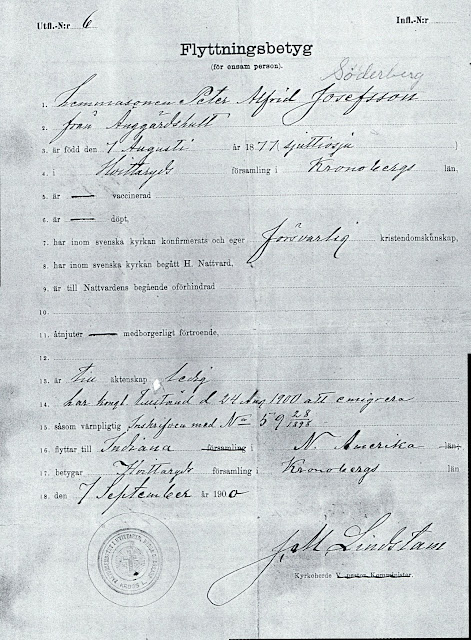 Utfl.-N:r 6 Infl.-N:r
Flyttningsbetyg
(för ensam person).
Söderberg
1. Hemmasonen Peter Alfrid Josefsson
2. från Änggårdshult
3. är född den 7 Augusti år 1877 sjuttiosju )
4. i Hvittaryds församling i Kronobergs län,
5. är — vaccinerad
6. är — döpt,
7. har inom svenska kyrkan konfirmerats och eger försvarlig kristendomskunskap,
8. har inom svenska kyrkan begått H. Nattvard,
9. är till Nattvardens begående oförhindrad
10.
11. åtnjuter — medborgerligt förtroende,
12.
13. är till äktenskap ledig
14. har kongl tillstånd d 24 Aug 1900 att emigrera
15. såsom värnpligtig Inskrifven med No 59 28/1898
16. flyttar till Indiana församling i N. Amerika län;
17. betygar Hvittaryds församling i Kronobergs län
18. den 7 September år 1900
J. M. Lindstam
Kyrkoherde V. pastor, Komminister.